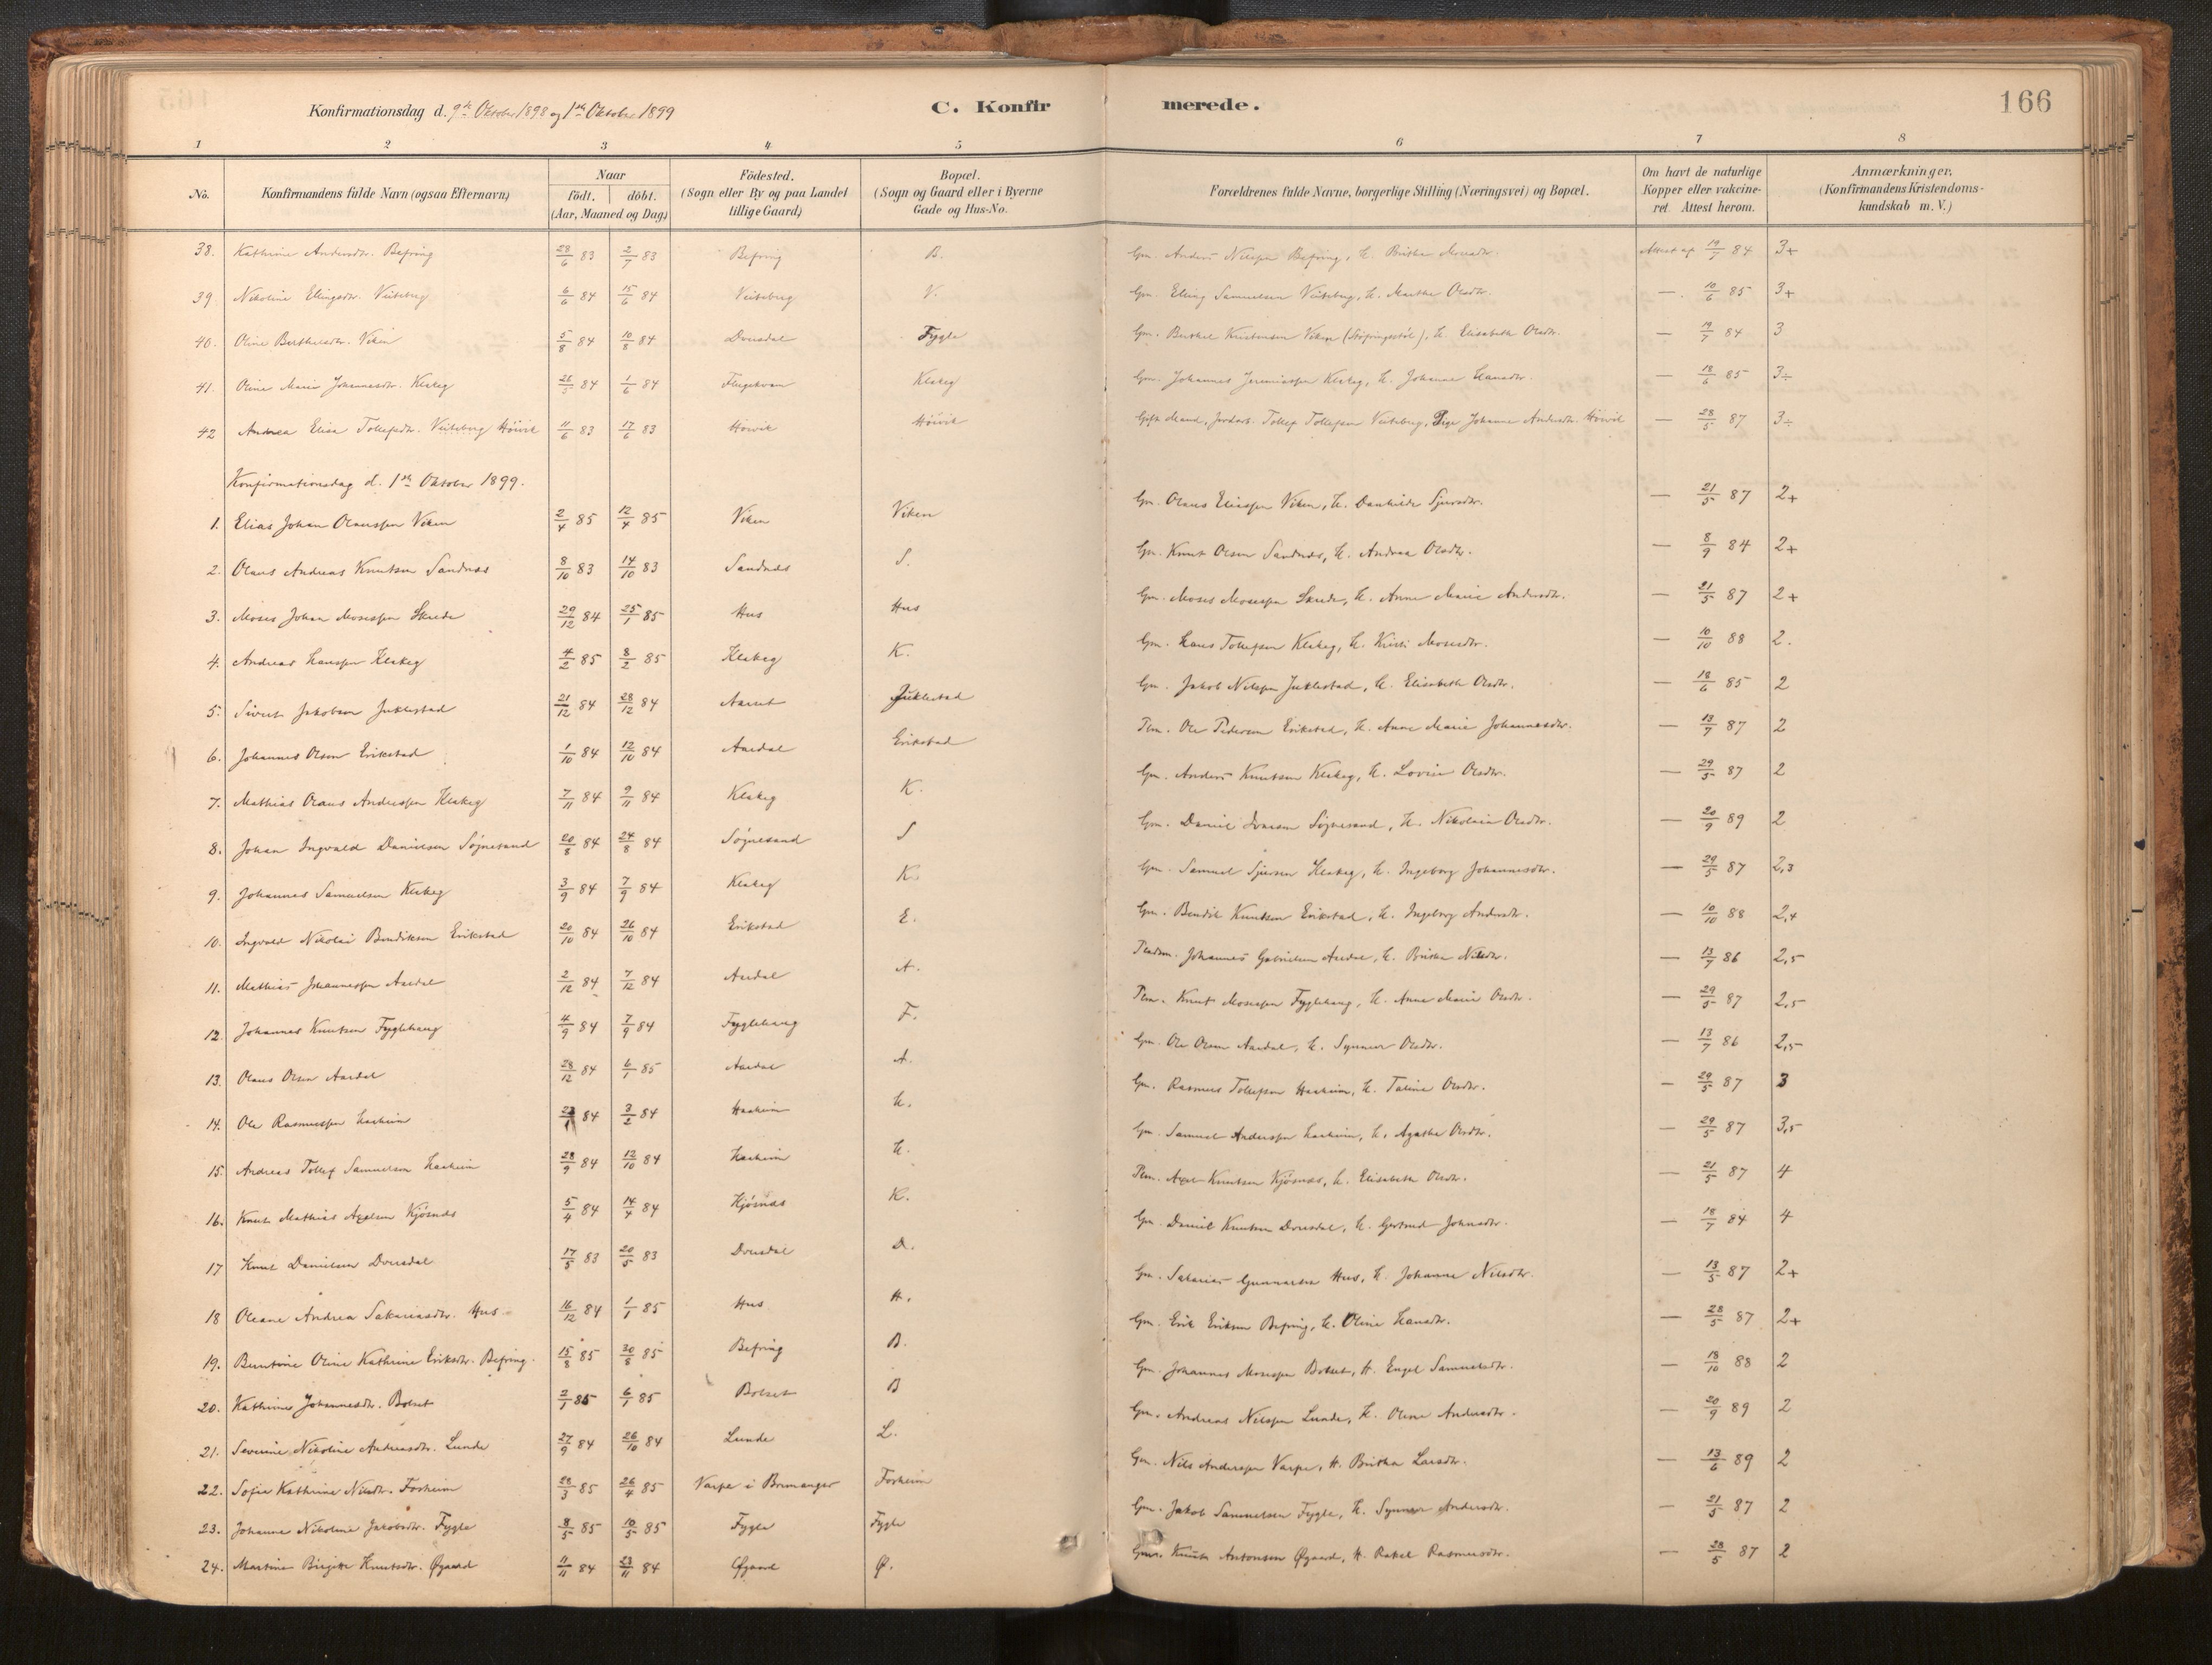 Konfirmationsdag d. 9de Oktober 1898 og 1ste Oktober 1899 C. Konfir merede. 166
1 2 3 4 5 6 7 8
No. Konfirmandens fulde Navn (ogsaa Efternavn) Naar födt. döbt. (Aar, Maaned og Dag) Födested. (Sogn eller By og paa Landet tillige Gaard) Bopæl. (Sogn og Gaard eller i Byerne Gade og Hus-No. Forældrenes fulde Navne, borgerlige Stilling (Næringsvei) og Bopæl. Om havt de naturlige Kopper eller vakcineret. Attest herom. Anmærkninger, (Konfirmandens Kristendomskundskab m. V.)
38. Kathrine Andersdtr. Befring 28/6 83 2/7 83 Befring B. Gm. Anders Nilssen Befring, H. Brithe Mosesdtr. Attest af 19/7 84 3+
39 Nikoline Ellingsdtr. Veiteberg 6/6 84 15/6 84 Veiteberg V. Gm. Elling Samuelsen Veiteberg, H. Marthe Olsdtr. — 10/6 85 3+
40. Oline Berthelsdtr. Viken 5/8 84 10/8 84 Dvergsdal Fygle Gm. Berthel Knutsen Viken (Støfringsstøl), H. Elisabeth Olsdtr. — 19/7 84 3
41. Oline Marie Johannesdtr. Klakeg 26/5 84 1/6 84 Flugekvam Klakeg Gm. Johannes Jeremiassen Klakeg, H. Johanne Hansdtr. — 18/6 85 3÷
42 Andrea Elise Tollefsdtr. Veiteberg Höivik 11/6 83 17/6 83 Höivik Höivik Gift Mand, Jordarb. Tollef Tollefsen Veiteberg, Pige Johanne Andersdtr. Höivik — 28/5 87 3÷
Konfirmationsdag d. 1ste Oktober 1899.
1. Elias Johan Olaussen Viken 2/4 85 12/4 85 Viken Viken Gm. Olaus Eliassen Viken, H. Danhilde Sjursdtr. — 21/5 87 2+
2. Olaus Andreas Knutsen Sandnæs 8/10 83 14/10 83 Sandnæs S. Gm. Knut Olsen Sandnæs, H. Andrea Olsdtr. — 8/9 84 2+
3. Moses Johan Mosessen Skrede 29/12 84 25/1 85 Hus Hus Gm. Moses Mosessen Skrede, H. Anne Marie Andersdtr. — 21/5 87 2+
4. Andreas Hanssen Klakeg 4/2 85 8/2 85 Klakeg K. Gm. Hans Tollefsen Klakeg, H. Kristi Mosesdtr. — 10/10 88 2.
5. Sivert Jakobsen Juklestad 21/12 84 28/12 84 Aarset Juklestad Gm. Jakob Nilssen Juklestad, H. Elisabeth Olsdtr. — 18/6 85 2
6. Johannes Olsen Erikstad 1/10 84 12/10 84 Aardal Erikstad Plm. Ole Pedersen Erikstad, H. Anne Marie Johannesdtr. — 13/7 87 2
7. Mathias Olaus Anderssen Klakeg 7/11 84 9/11 84 Klakeg K. Gm. Anders Knutsen Klakeg, H. Lovise Olsdtr. — 29/5 87 2
8. Johan Ingvald Danielsen Søgnesand 20/8 84 24/8 84 Søgnesand S Gm. Daniel Ivarsen Søgnesand, H. Nikolaia Olsdtr. — 20/9 89 2
9. Johannes Samuelsen Klakeg 3/9 84 7/9 84 Klakeg K. Gm. Samuel Sjursen Klakeg, H. Ingeborg Johannesdtr. — 29/5 87 2,3
10. Ingvald Nikolai Bendiksen Erikstad 20/10 84 26/10 84 Erikstad E. Gm. Bendik Knutsen Erikstad, H. Ingeborg Andersdtr. — 10/10 88 2,4
11. Mathias Johannessen Aardal 2/12 84 7/12 84 Aardal A. Pladsm. Johannes Gabrielsen Aardal, H. Brithe Nilsdtr. — 13/7 86 2,5
12. Johannes Knutsen Fyglehaug 4/9 84 7/9 84 Fyglehaug F. Plm. Knut Mosessen Fyglehaug, H. Anne Marie Olsdtr. — 29/5 87 2,5
13. Olaus Olsen Aardal 28/12 84 6/1 85 Aardal A. Gm. Ole Olsen Aardal, H. Synneve Olsdtr. — 13/7 86 2,5
14. Ole Rasmussen Haaheim 84 3/2 84 Haaheim H. Gm. Rasmus Tollefsen Haaheim, H. Taline Olsdtr. — 29/5 87 3
15. Andreas Tollef Samuelsen Haaheim 28/9 84 12/10 84 Haaheim H. Gm. Samuel Anderssen Haaheim, H. Agathe Olsdtr. — 29/5 87 3,5
16. Knut Mathias Axelsen Kjösnæs 5/4 84 14/4 84 Kjösnæs K. Plm. Axel Knutsen Kjösnæs, H. Elisabeth Olsdtr. — 21/5 87 4
17 Knut Danielsen Dvergsdal 17/5 83 20/5 83 Dvergsdal D. Gm. Daniel Knutsen Dvergsdal, H. Gertrud Johnsdtr. — 18/7 84 4
18 Oleane Andrea Sakariasdtr. Hus 16/12 84 1/1 85 Hus H. Gm. Sakarias Gunnarsen Hus, H. Johanne Nilsdtr. — 13/5 87 2+
19. Berntine Oline Kathrine Eriksdtr. Befring. 15/8 85 30/8 85 Befring B. Gm. Erik Eriksen Befring, H. Oline Hansdtr. — 28/5 87 2+
20. Kathrine Johannesdtr. Bolset 2/1 85 6/1 85 Bolset B Gm. Johannes Mosessen Bolset, H. Engel Samuelsdtr. — 18/10 88 2
21. Severine Nikoline Andreasdtr. Lunde 27/9 84 26/10 84 Lunde L. Gm. Andreas Nilssen Lunde, H. Oline Andersdtr. — 20/9 89 2
22. Sofie Kathrine Nilsdtr. Forheim 28/3 85 26/4 85 Varpe i Bremanger Forheim Gm. Nils Anderssen Varpe, H. Brithe Larsdtr. — 13/6 89 2
23. Johanne Nikoline Jakobsdtr. Fygle 8/5 85 10/5 85 Fygle Fygle Gm. Jakob Samuelsen Fygle, H. Synneve Andersdtr. — 21/5 87 2
24. Martine Birgitte Knutsdtr. Øgaard 11/11 84 23/11 84 Øgaard Ø. Gm. Knut Antonsen Øgaard, H. Rakel Rasmusdtr. — 28/5 87 2